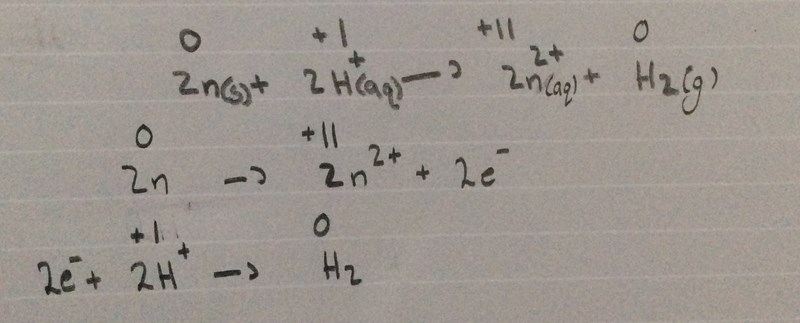 0 +I +II 0
Zn(s) + 2H⁺(aq) → Zn²⁺(aq) + H₂(g)
0 +II
Zn → Zn²⁺ + 2e⁻
+I 0
2e⁻ + 2H⁺ → H₂